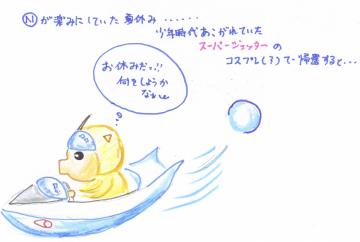 Ⓝが楽みにしていた夏休み ......
少年時代あこがれていた
スーパージェッターの
コスプレ(?)で帰還すると...
お休みだッ!!
何をしようか
なぁ〜